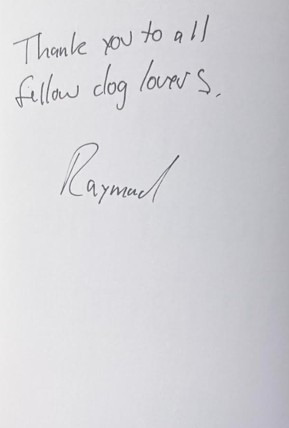 Thank you to all
fellow dog lovers.
Raymud